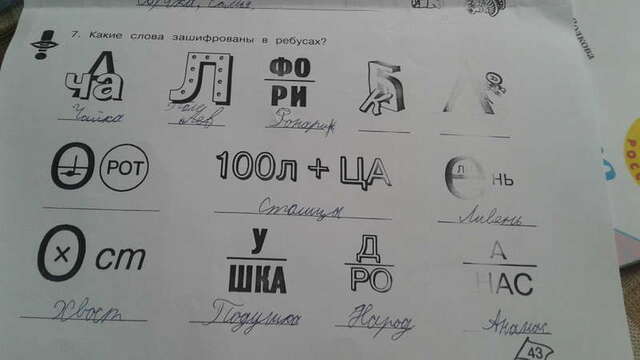 7. Какие слова зашифрованы в ребусах?
ча
Л
ФО
РИ
Б
к
Л
Чайка
Лев
Фонарик
О
РОТ
100л + ЦА
е
л
нь
Столица
Ливень
О
х
ст
У
ШКА
Д
РО
А
НАС
Хвост
Подушка
Народ
Ананас
43